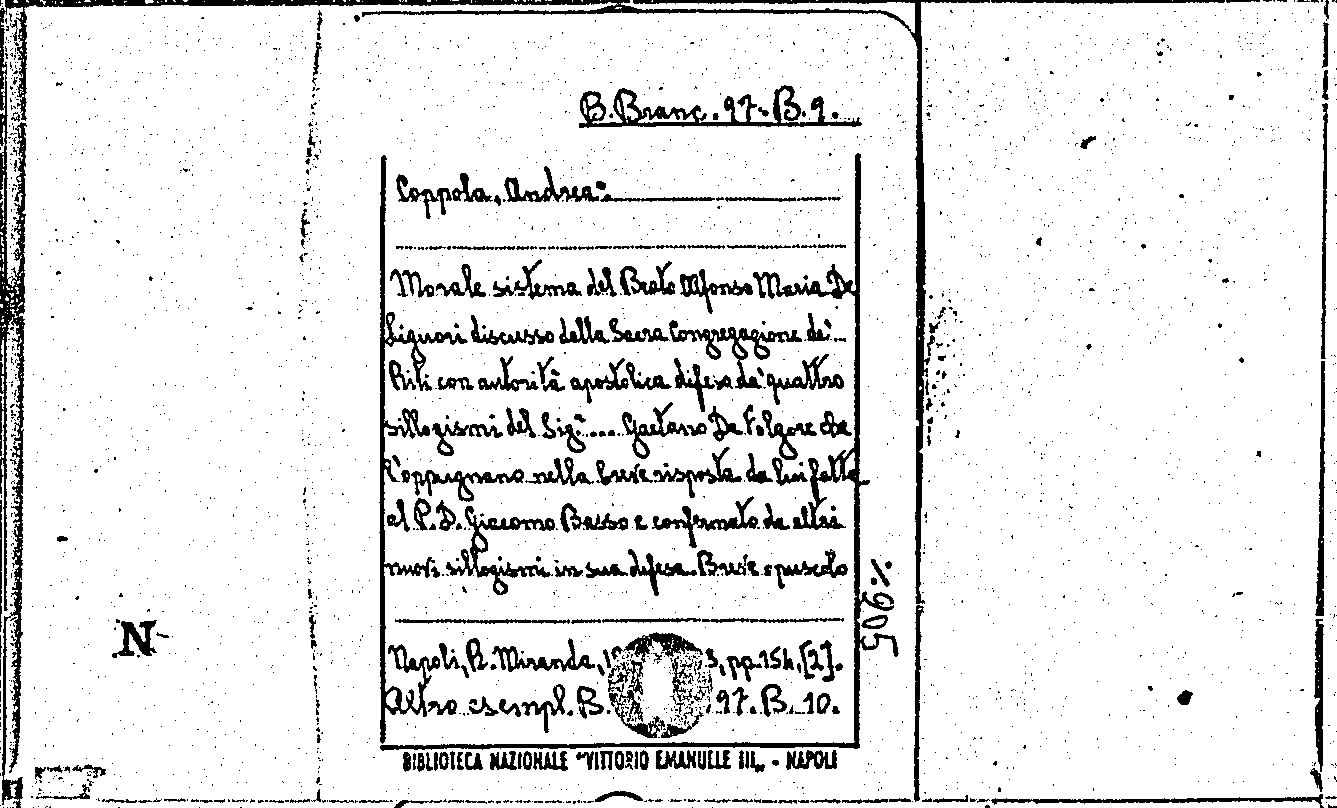 B. Branc. 97-B. 9.
Coppola, Andrea:
Morale sistema del Beato Alfonso Maria De
Liguori discusso dalla Sacra Congregazione de'
Riti con autorità apostolica difeso da' quattro
sillogismi del Sig.r .... Gaetano De Folgore che
l'oppugnano nella breve risposta da lui fatta
al P. D. Giacomo Basso e confermato da altri
nuovi sillogismi in sua difesa. Breve opuscolo
Napoli, R. Miranda, pp. 154, [2].
Altro esempl. B. 97. B. 10.
BIBLIOTECA NAZIONALE "VITTORIO EMANUELLE III„ - NAPOLI
%905
N